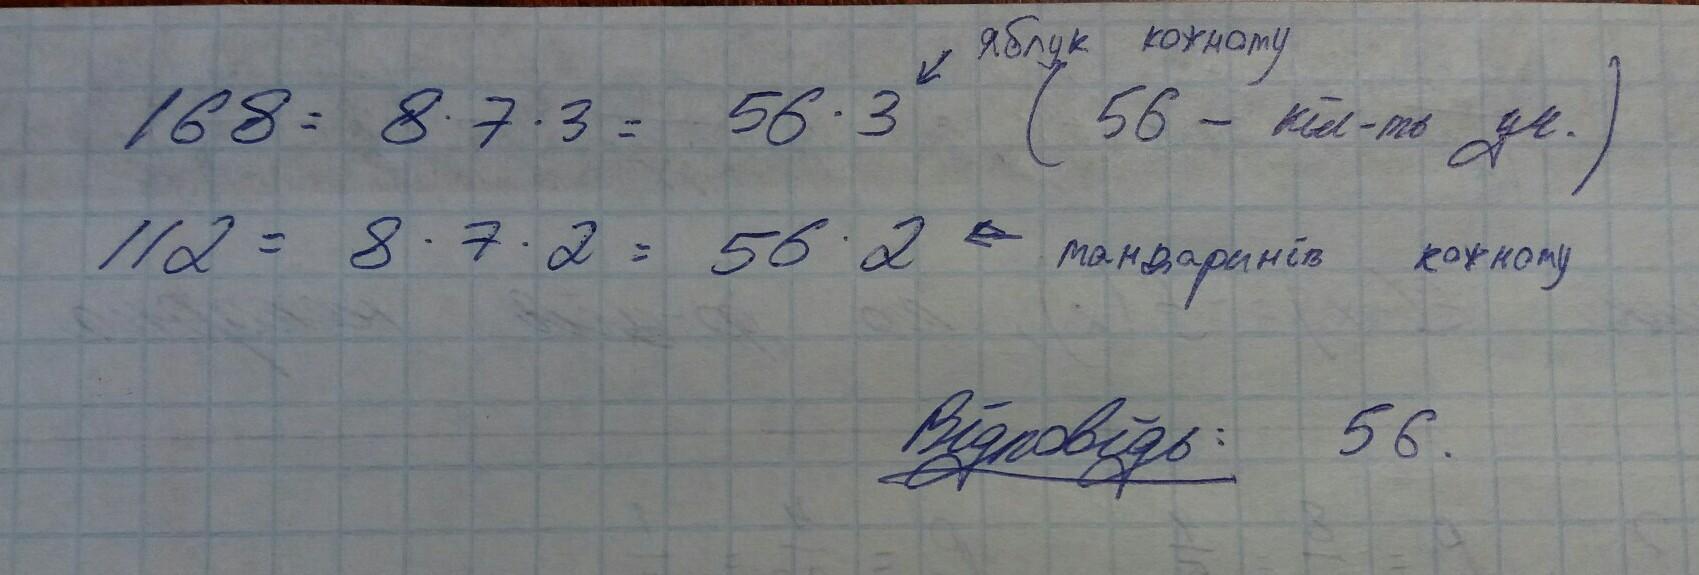 яблук кожному
168 = 8 · 7 · 3 = 56 · 3 ( 56 – кіл-ть уч. )
112 = 8 · 7 · 2 = 56 · 2 ← мандаринів кожному
Відповідь: 56.